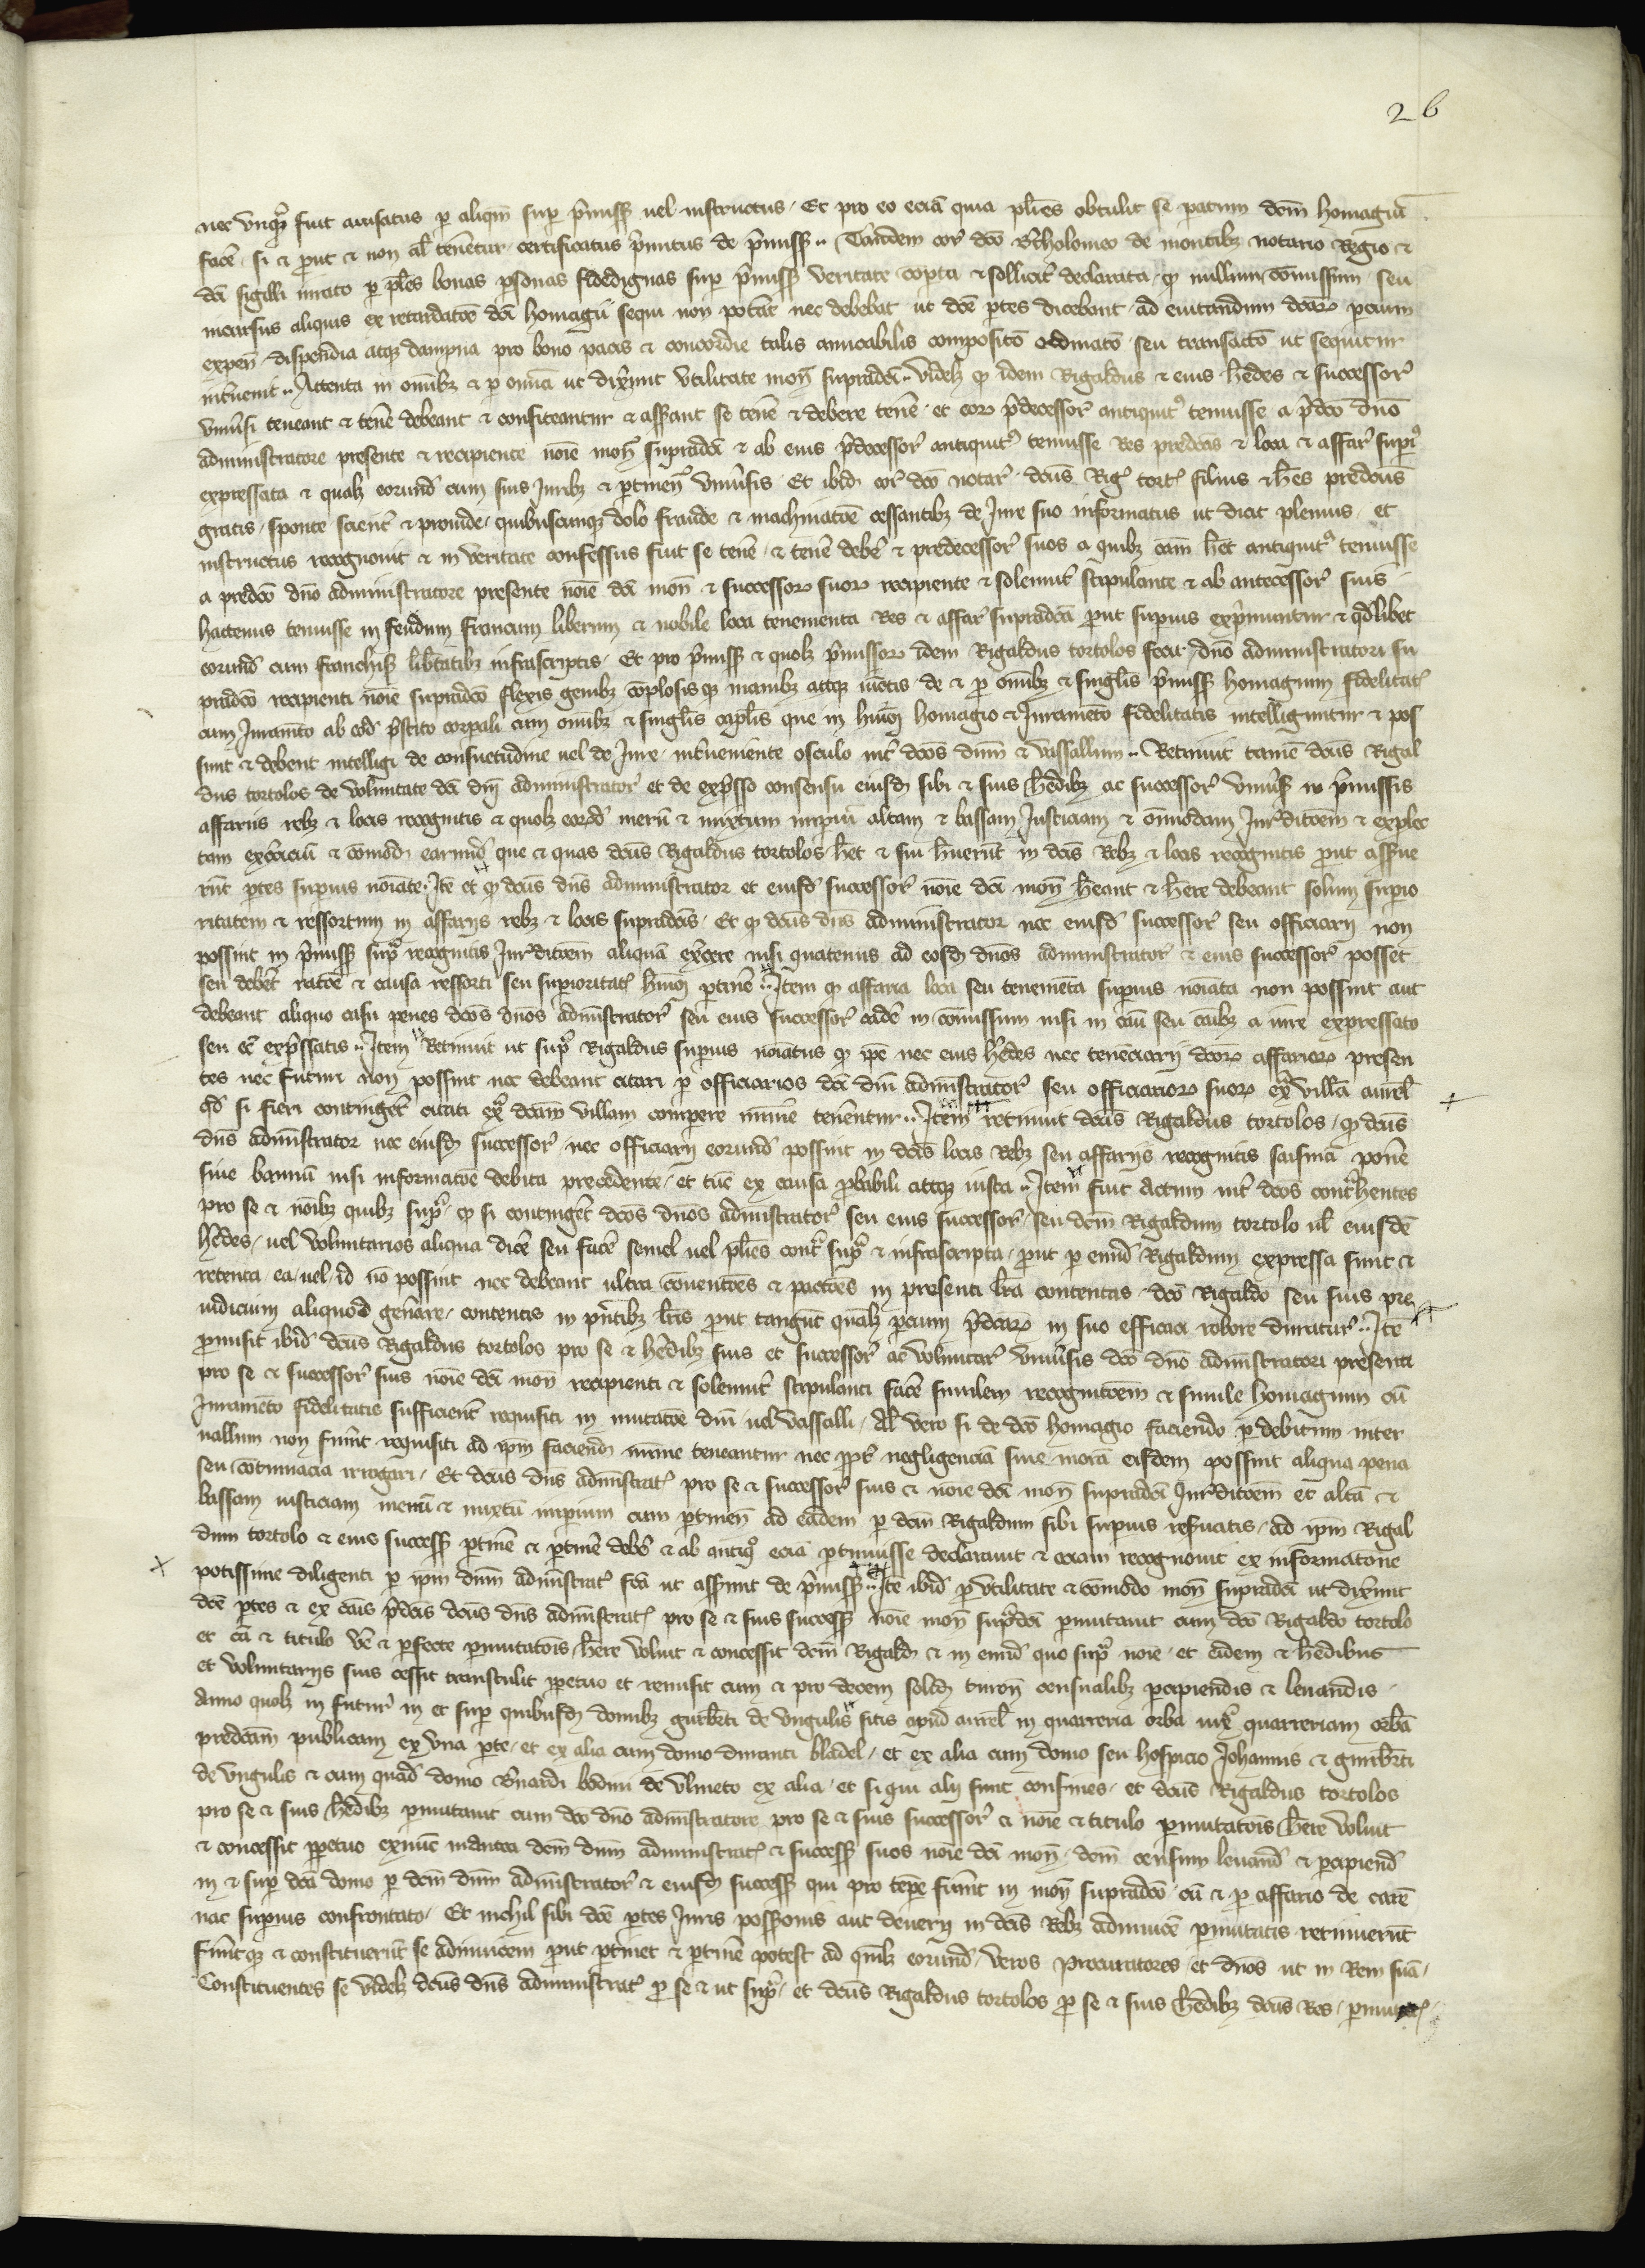 26
nec unqᷓ fuit avisatus p aliqm̄ sup p̄miss᷒ uel instructus Et pro eo eciā quia pl̄ies obtulit se patum dc̄m homagiū
facē si et put et non al̄ tenetur certificatus p̄mitus de p̄miss᷒ Tandem cor̄ dc̄o b̄tholomeo de montibȝ notario Regio et
dc̄i sigilli iurato p pl̄es bonas psonas fidedignas sup p̄miss᷒ veritate copta et sollicit̄ declarata qꝫ nullum com̄issum seu
incursus aliquis ex retardacōe dc̄i homagii sequi non potāt nec debebat ut dc̄e ptes dicebant ad evitandum dc̄aꝝ pcium
expen̄ dispendia atqȝ dampna pro bono pacis et concordie talis amicabilis compositō ordinatō seu transactō ut sequitur
int̄venit Attenta in om̄ibȝ et p omīa ut dix̄unt utilitate mon̄ supradc̄i videlȝ qꝫ idem Rigaldus et eius h̄edes et successor̄
univ̄si teneant et tenē debeant et confiteantur et assūant se tenē et debere tenē et eoꝝ p̄decessor̄ antiquit᷒ tenuisse a p̄dc̄o dn̄o
administratore presente et recipiente noīe mon̄ supradc̄i et ab eius p̄decessor̄ antiquit᷒ tenuisse Res predc̄as et loca et affar̄ supi᷒
expressata et qualȝ eorund̄ cum suis Juribȝ et ptinen̄ univ̄sis Et ibid̄ cor̄ dc̄o notar̄ dc̄us Riḡ tort̄ filius et h̄es predc̄us
gratis sponte scient̄ et provide quibuscunqȝ dolo fraude et machinacōe cessantibȝ de Jure suo informatus ut dicit plenius et
instructus recognovit et in veritate confessus fuit se tenē et tenē debē et predecessor̄ suos a quibȝ cām h̄et antiquit᷒ tenuisse
a predc̄o dn̄o administratore presente noīe dc̄i mon̄ et successoꝝ suoꝝ recipiente et solemnit̄ stipulante et ab antecessor̄ suis
hactenus tenuisse in feudum francum liberum et nobile loca tenementa Res et affar̄ supradc̄a put supius exp̄muntur et qdlibet
eorund̄ cum franchis᷒ lib̄tatibȝ infrascriptis Et pro p̄miss᷒ et quolȝ p̄missoꝝ idem Rigaldus tortolos fecit dn̄o administratori su
pradc̄o recipienti noīe supradc̄o flexis genibȝ coplosisqꝫ manibȝ atqȝ iūctis de et p om̄ibȝ et singl̄is p̄miss᷒ homagium fidelitat̄
cum Juram̄to ab eod̄ p̄stito corpali cum om̄ibȝ et singl̄is capl̄is que in hm̄oi homagio et Juramēto fidelitatis intelliguntur et pos
sunt et debent intelligi de consuetudine uel de Jure int̄veniente osculo int̄ dc̄os dn̄m et vassallum Retinuit tamē dc̄us Rigal
dus tortolos de voluntate dc̄i dn̄i administrator̄ et de exp̄sso consensu eiusd̄ sibi et suis h̄edibȝ ac successor̄ univ̄s᷒ in p̄missis
affariis rebȝ et locis recognitis et quolȝ eorūd̄ merū et mixtum imperiū altam et bassam Justiciam et om̄imodam Jur̄ditcōem et explec
tam exerciciū et comod̄ earund̄ que et quas dc̄us Rigaldus tortolos h̄et et sui h̄uerūt in dc̄is Rebȝ et locis recognitis put assūe
rūt ptes supius noīate Itē et qꝫ dc̄us dn̄s administrator et eiusd̄ successor̄ noīe dc̄i mon̄ h̄eant et h̄ere debeant solum supio
ritatem et ressortum in affariis rebȝ et locis supradc̄is Et qꝫ dc̄us dn̄s administrator nec eiusd̄ successor̄ seu officiarii non
possint in p̄miss᷒ supᷓ recognitis Jur̄ditcōem aliquā ex̄cere nisi quatenus ad eosd̄ dn̄os administrator̄ et eius successor̄ posset
seu debēt ratōe et causa ressorti seu supioritat̄ hm̄oi ptinē Item qꝫ affaria loca seu tenemēta supius noīata non possint aut
debeant aliquo casu penes dc̄os dn̄os administrator̄ seu eius successor̄ cadē in com̄issum nisi in casū seu casibȝ a iure expressato
seu ec̄ exp̄ssatis Item Retinuit ut supᷓ Rigaldus supius noīatus qꝫ ipē nec eius h̄edes nec tenēciarii dc̄oꝝ affarioꝝ presen
tes nec futuri non possint nec debeant citari p officiarios dc̄i dn̄i administrator̄ seu officiarioꝝ suoꝝ exᷓ villā aurel̄
qd si fieri contingēt citati exᷓ dc̄am villam compere minīe tenentur Item retinuit dc̄us Rigaldus tortolos qꝫ dc̄us
dn̄s administrator nec eiusd̄ successor̄ nec officiarii eorund̄ possint in dc̄is locis Rebȝ seu affariis recognitis saisinā ponē
sive bannū nisi informacōe debita precedente et tūc ex causa pbabili atqȝ iusta Item fuit actum int̄ dc̄os cont̄hentes
pro se et noībȝ quibȝ supᷓ qꝫ si contingēt dc̄os dn̄os administrator̄ seu eius successor̄ seu dc̄m Rigaldum tortolo ul̄ eiusdē
h̄edes uel voluntarios aliqua dicē seu facē semel uel pl̄ies cont̄ supᷓ et infrascripta put p eund̄ Rigaldum expressa sunt et
retenta ea uel id nō possint nec debeant ultra conventōes et pactōes in presenti l̄ra contentas dc̄o Rigaldo seu suis pre
iudicium aliquod gen̄are contentis in pn̄tibȝ l̄ris put tangūt qualȝ pcium p̄dc̄aꝝ in suo efficaci robore duratur̄ Itē
pmisit ibid̄ dc̄us Rigaldus tortolos pro se et h̄edibȝ suis et successor̄ ac voluntar̄ univ̄sis dc̄o dn̄o administratori presenti
pro se et successor̄ suis noīe dc̄i mon̄ recipienti et solemnit̄ stipulanti facē similem recognitcōem et simile homagium cū
Juramēto fidelitatis sufficient̄ requisiti in mutacōe dn̄i uel vassalli Al̄ vero si de dc̄o homagio faciendo p debitum inter
vallum non fuīnt requisiti ad ipm̄ faciend̄ minīe teneantur nec ppt̄ negligenciā sive morā eisdem possint aliqua pena
seu cotumacia irrogari Et dc̄us dn̄s administrat̄ pro se et successor̄ suis et noīe dc̄i mon̄ supradc̄i Jur̄ditcōem et altā et
bassam iusticiam merū et mixtū imperium cum ptinen̄ ad eādem p dc̄m Rigaldum sibi supius res̄vatis ad ipm̄ Rigal
dum tortolo et eius success᷒ ptinē et ptinē debē et ab antiqᷓ eciā ptinuisse declaravit et eciam recognovit ex informatone
potissime diligenti p ipm̄ dn̄m administrat̄ fc̄a ut assūunt de p̄miss᷒ Itē ibid̄ p utilitate et comodo mon̄ supradc̄i ut dix̄unt
dc̄e ptes et ex cāis p̄dc̄is dc̄us dn̄s administrat̄ pro se et suis success᷒ noīe mon̄ supᷓdc̄i pmutavit cum dc̄o Rigaldo tortolo
et cā et titulo v̄e et pfecte pmutatōis h̄ere voluit et concessit dc̄m Rigald̄ et in eund̄ quo supᷓ noīe et eidem et h̄edibus
et voluntariis suis cessit transtulit ppetuo et remisit cum et pro decem solid̄ turon̄ censualibȝ pcipiendis et levandis
Anno quolȝ in futur̄ in et sup quibusd̄ domibȝ guirb̄ti de ungulis sitis apud aurel̄ in quarreria orba iuxᷓ quarreriam orbā
predc̄am publicam ex una pte et ex alia cum domo duranti bladel et ex alia cum domo seu hospicio Johannis et guirb̄ti
de ungulis et cum quad̄ domo b̄nardi bodini de ulmeto ex alia et si qui alii sunt confines et dc̄us Rigaldus tortolos
pro se et suis h̄edibȝ pmutavit cum dc̄o dn̄o administratore pro se et suis successor̄ et noīe et titulo pmutatōis h̄ere voluit
et concessit ppetuo exnūc inantea dc̄m dn̄m administrat̄ et success᷒ suos noīe dc̄i mon̄ dc̄m censum levand̄ et pcipiend̄
in et sup dc̄a domo p dc̄m dn̄m administrator̄ et eiusd̄ success᷒ qui pro tempe fuīnt in mon̄ supradc̄o cū et p affario de care
nac supius confrontato Et nichil sibi dc̄e ptes Juris possionis aut deverii in dc̄is Rebȝ adinvicē pmutatis retinuerūt
fueīntqꝫ et constituerūt se adinvicem put ptinet et ptinē potest ad qmlȝ eorund̄ veros procuratores et dn̄os ut in Rem suā
Constituentes se videlȝ dc̄us dn̄s administrat̄ p se et ut supᷓ et dc̄us Rigaldus tortolos p se et suis h̄edibȝ dc̄us Res